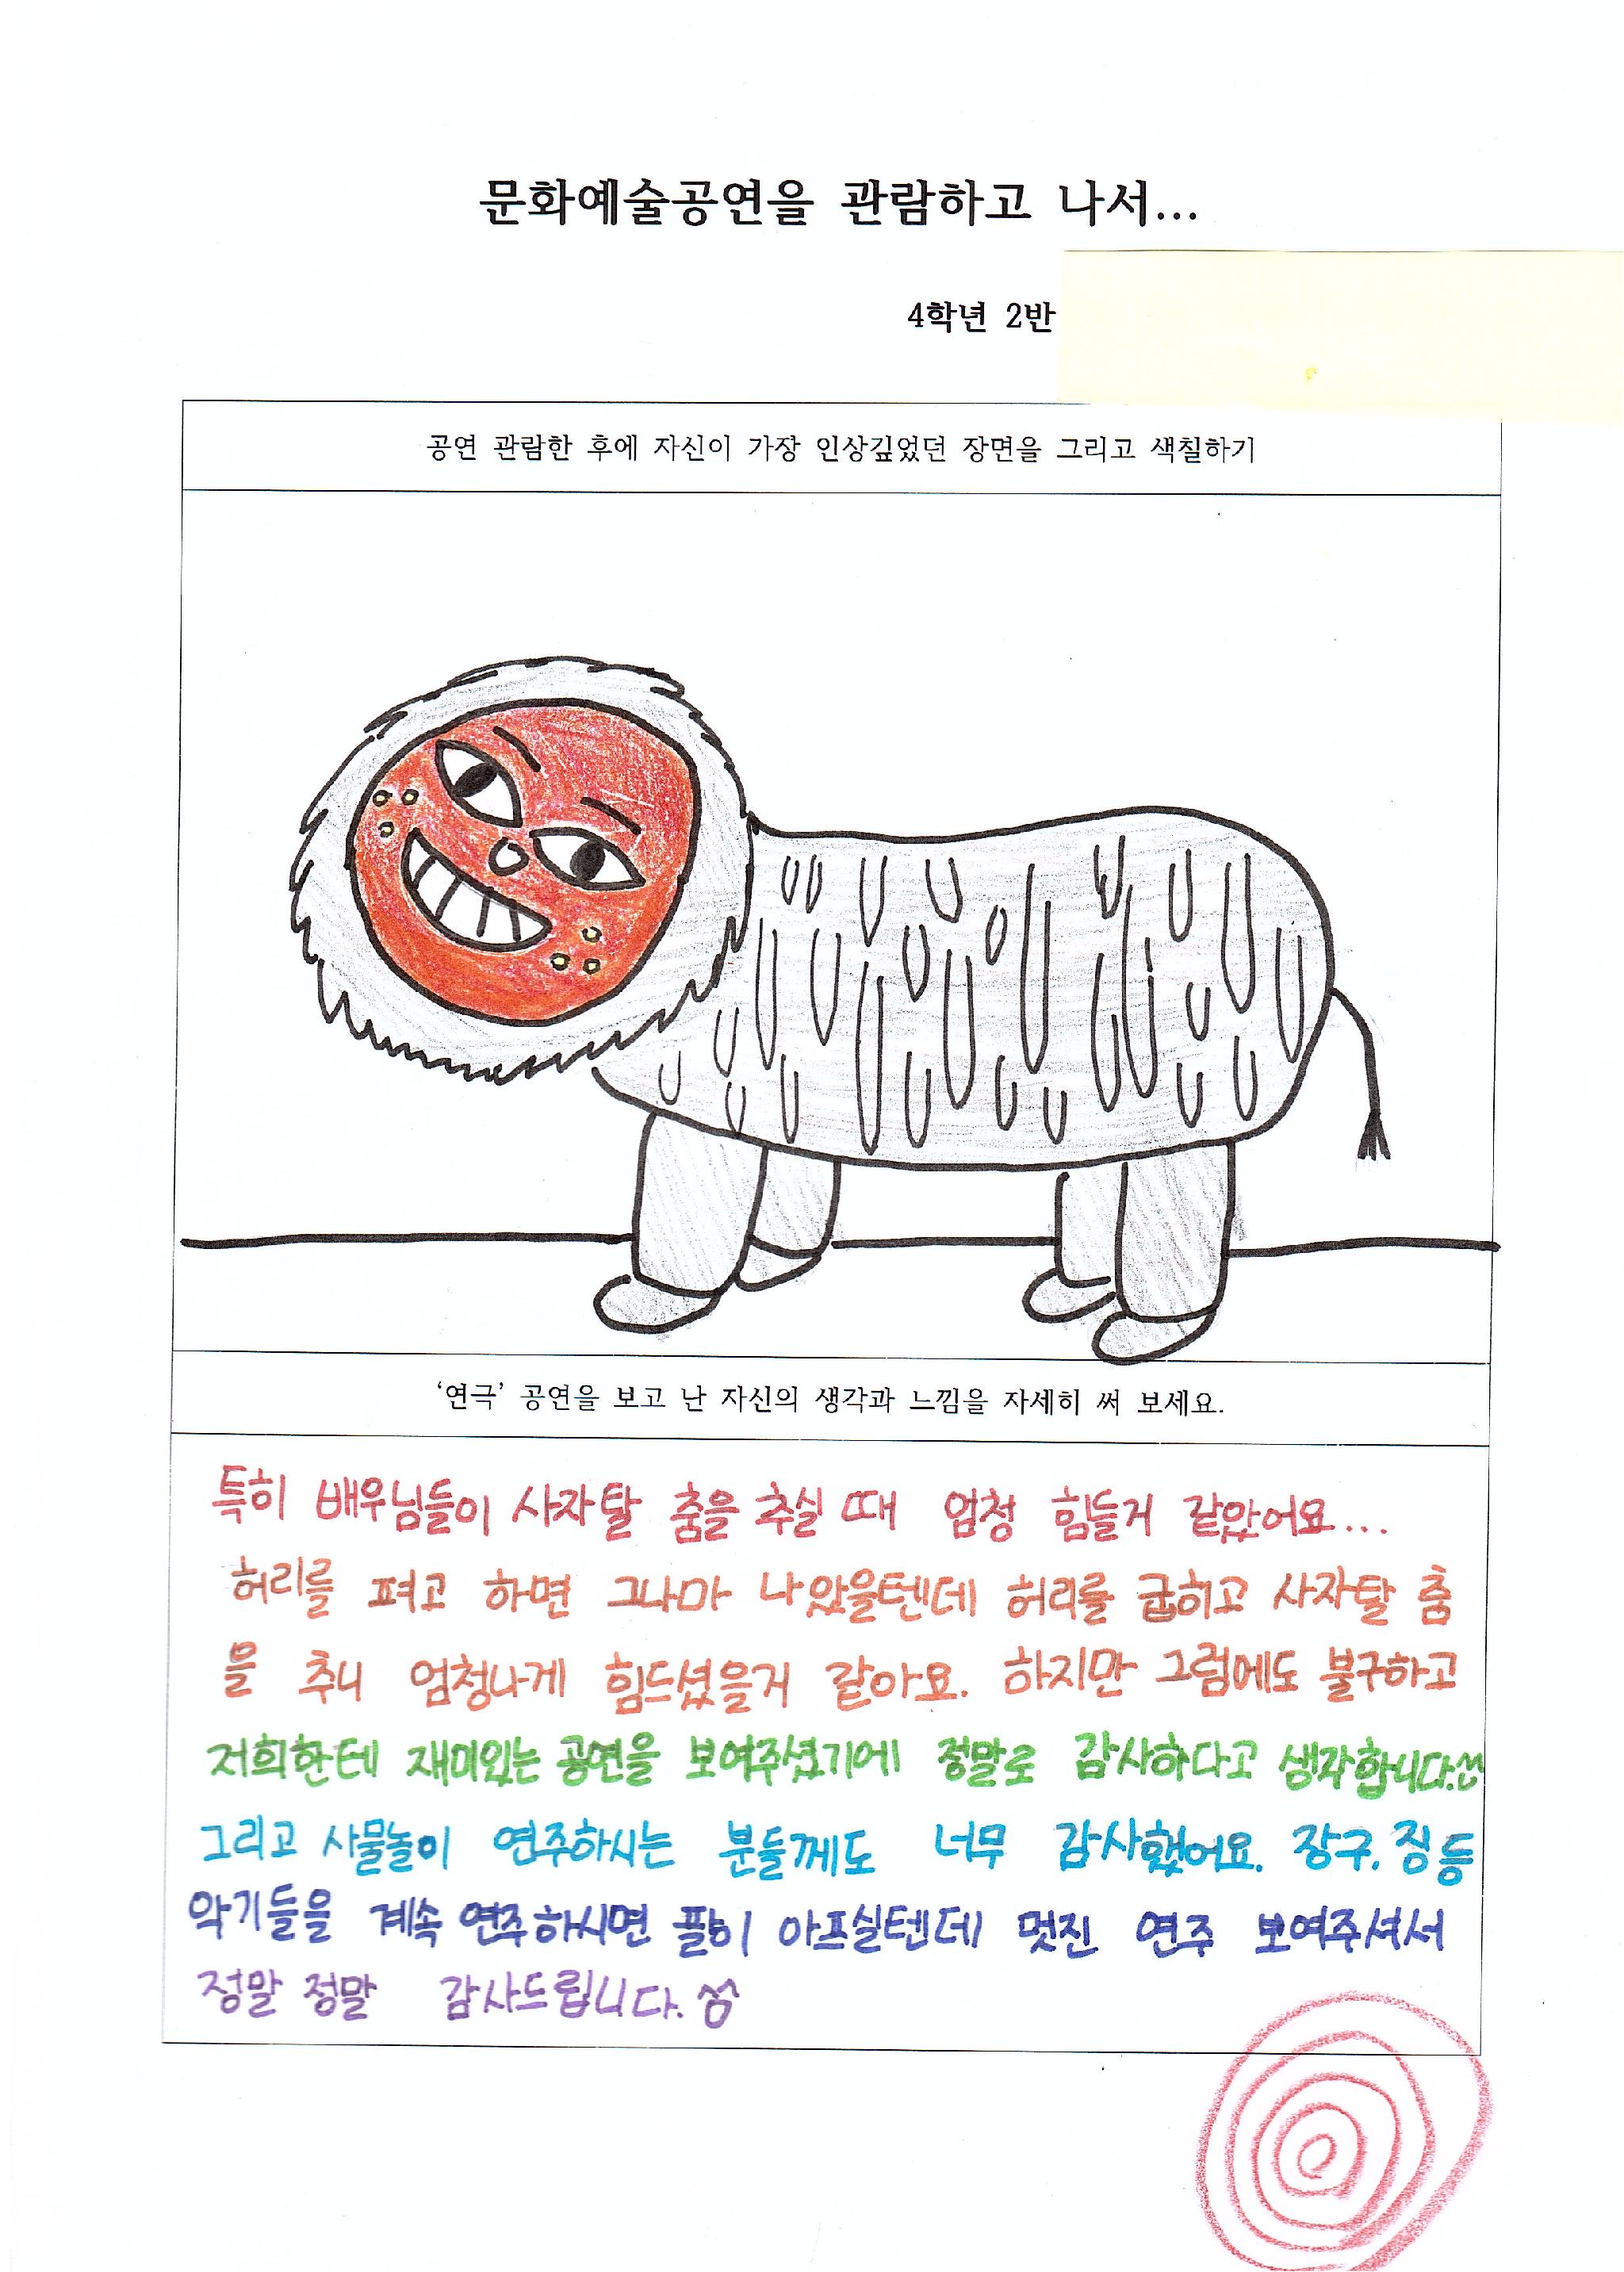 문화예술공연을 관람하고 나서...
4학년 2반
공연 관람한 후에 자신이 가장 인상깊었던 장면을 그리고 색칠하기
‘연극’ 공연을 보고 난 자신의 생각과 느낌을 자세히 써 보세요.
특히 배우님들이 사자탈 춤을 추실 때 엄청 힘들거 같았어요...
허리를 펴고 하면 그나마 나았을텐데 허리를 굽히고 사자탈 춤
을 추니 엄청나게 힘드셨을거 같아요. 하지만 그럼에도 불구하고
저희한테 재미있는 공연을 보여주셨기에 정말로 감사하다고 생각합니다.^^
그리고 사물놀이 연주하시는 분들께도 너무 감사했어요. 장구, 징 등
악기들을 계속 연주하시면 팔이 아프실텐데 멋진 연주 보여주셔서
정말 정말 감사드립니다.